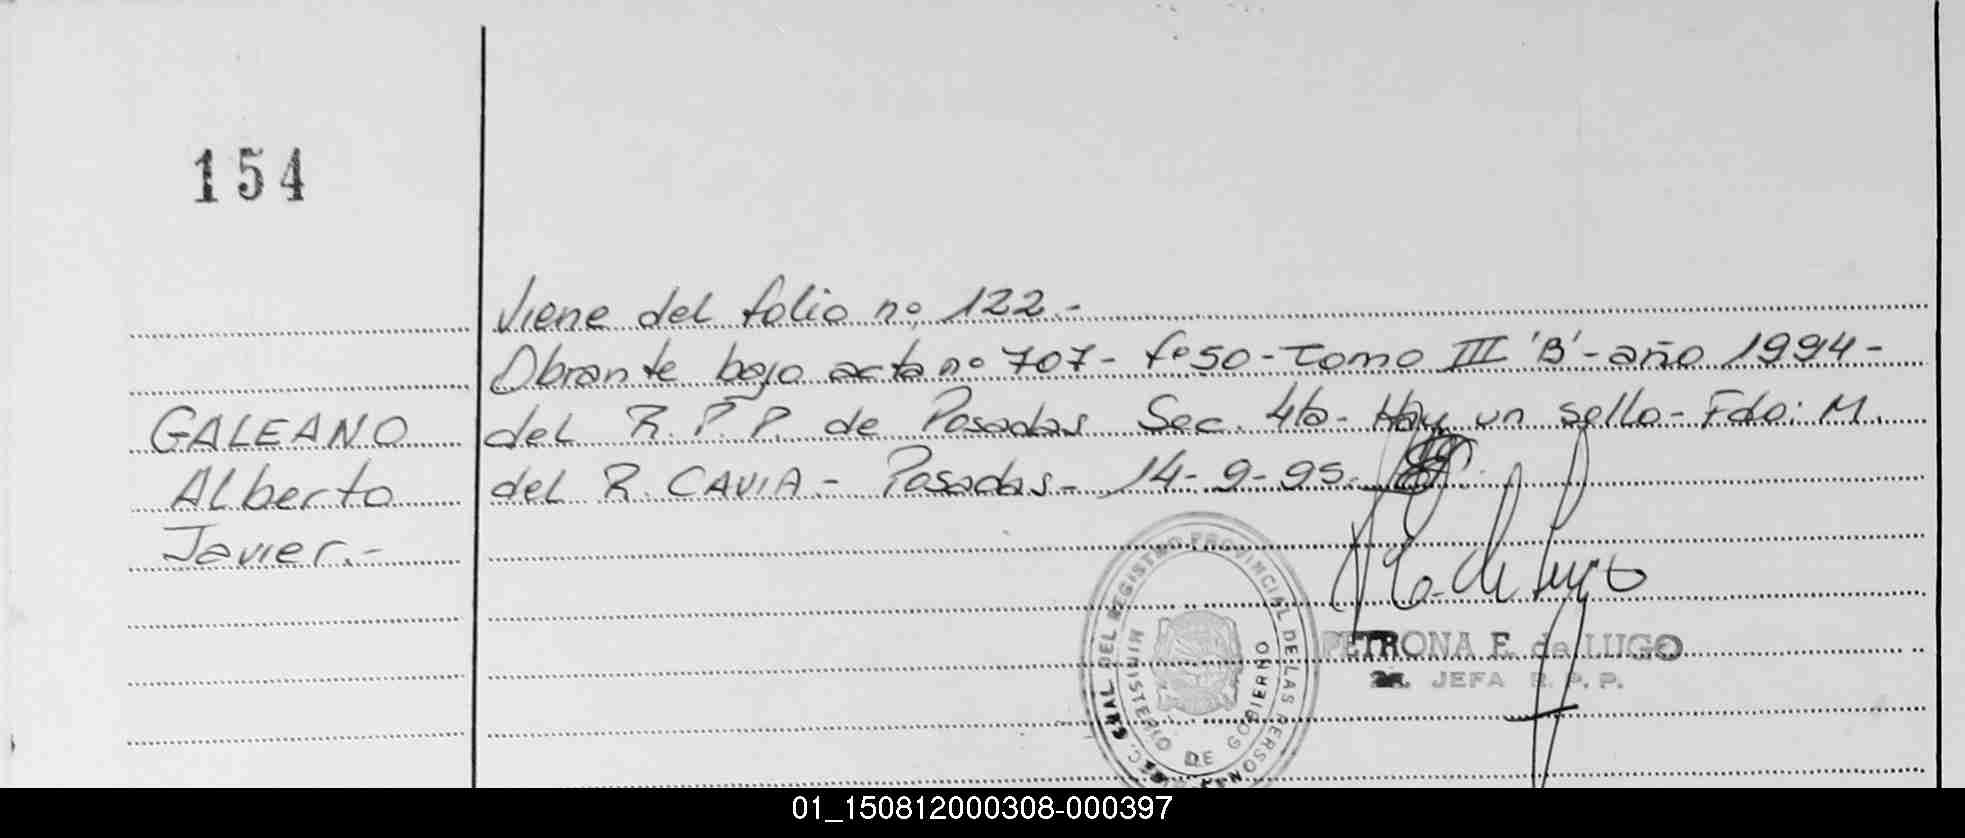 154
Viene del folio nº 122.-
Obrante bajo acta nº 707- fº 50- Tomo III 'B'- año 1994-
GALEANO del R.P.P. de Posadas Sec. 4ta- Hay un sello- Fdo: M.
Alberto del R. CAVIA- Posadas- 14-9-95.
Javier.-
PETRONA E. de LUGO
JEFA R. P. P.
GRAL DEL REGISTRO PROVINCIAL DE LAS PERSONAS
MINISTERIO DE GOBIERNO
01_150812000308-000397